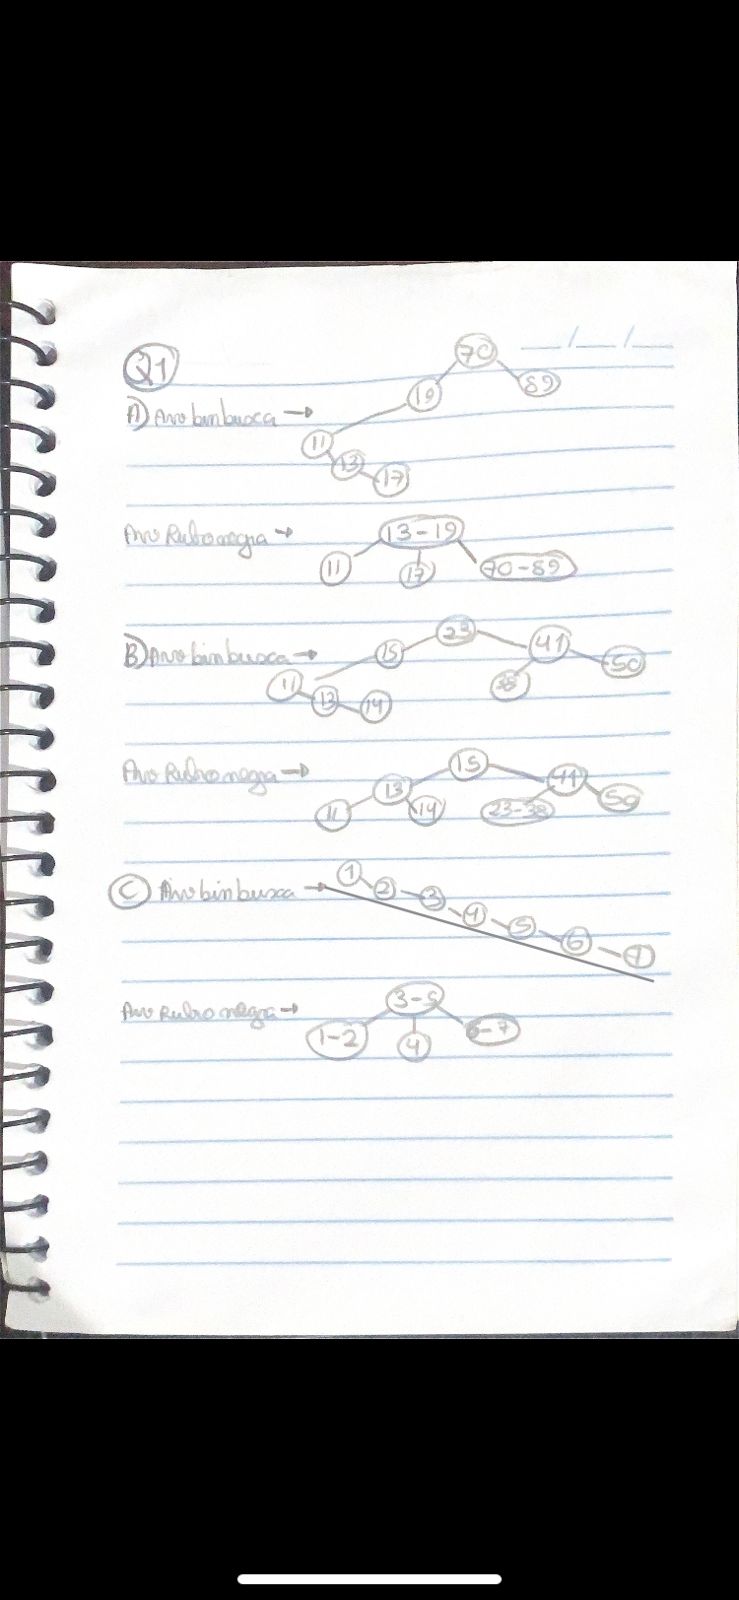 Q1
70
19 89
A) Arv bin busca →
11
13
17
Arv Rubro negra → 13-19
11 17 70-89
B) Arv bin busca → 15 23 41
50
11 13 14 38
Arv Rubro negra → 15
13 41
11 14 23-38 50
C Arv bin busca → 1 2 3 4 5 6 7
Arv Rubro negra → 3-5
1-2 4 6-7